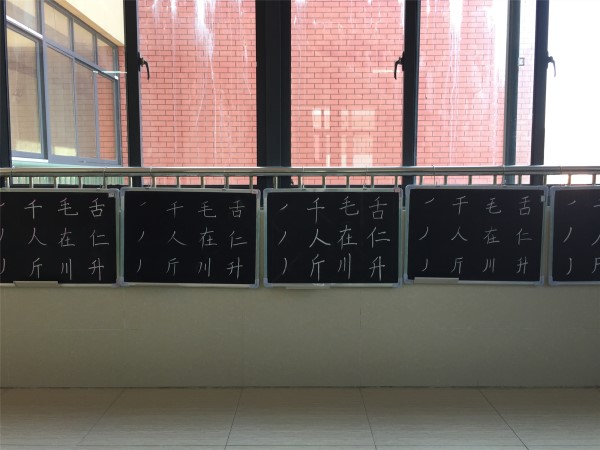 丿 千 毛 舌
丿 人 在 仁
丿 斤 川 升
丿 千 毛 舌
丿 人 在 仁
丿 斤 川 升
丿 千 毛 舌
丿 人 在 仁
丿 斤 川 升
丿 千 毛 舌
丿 人 在 仁
丿 斤 川 升